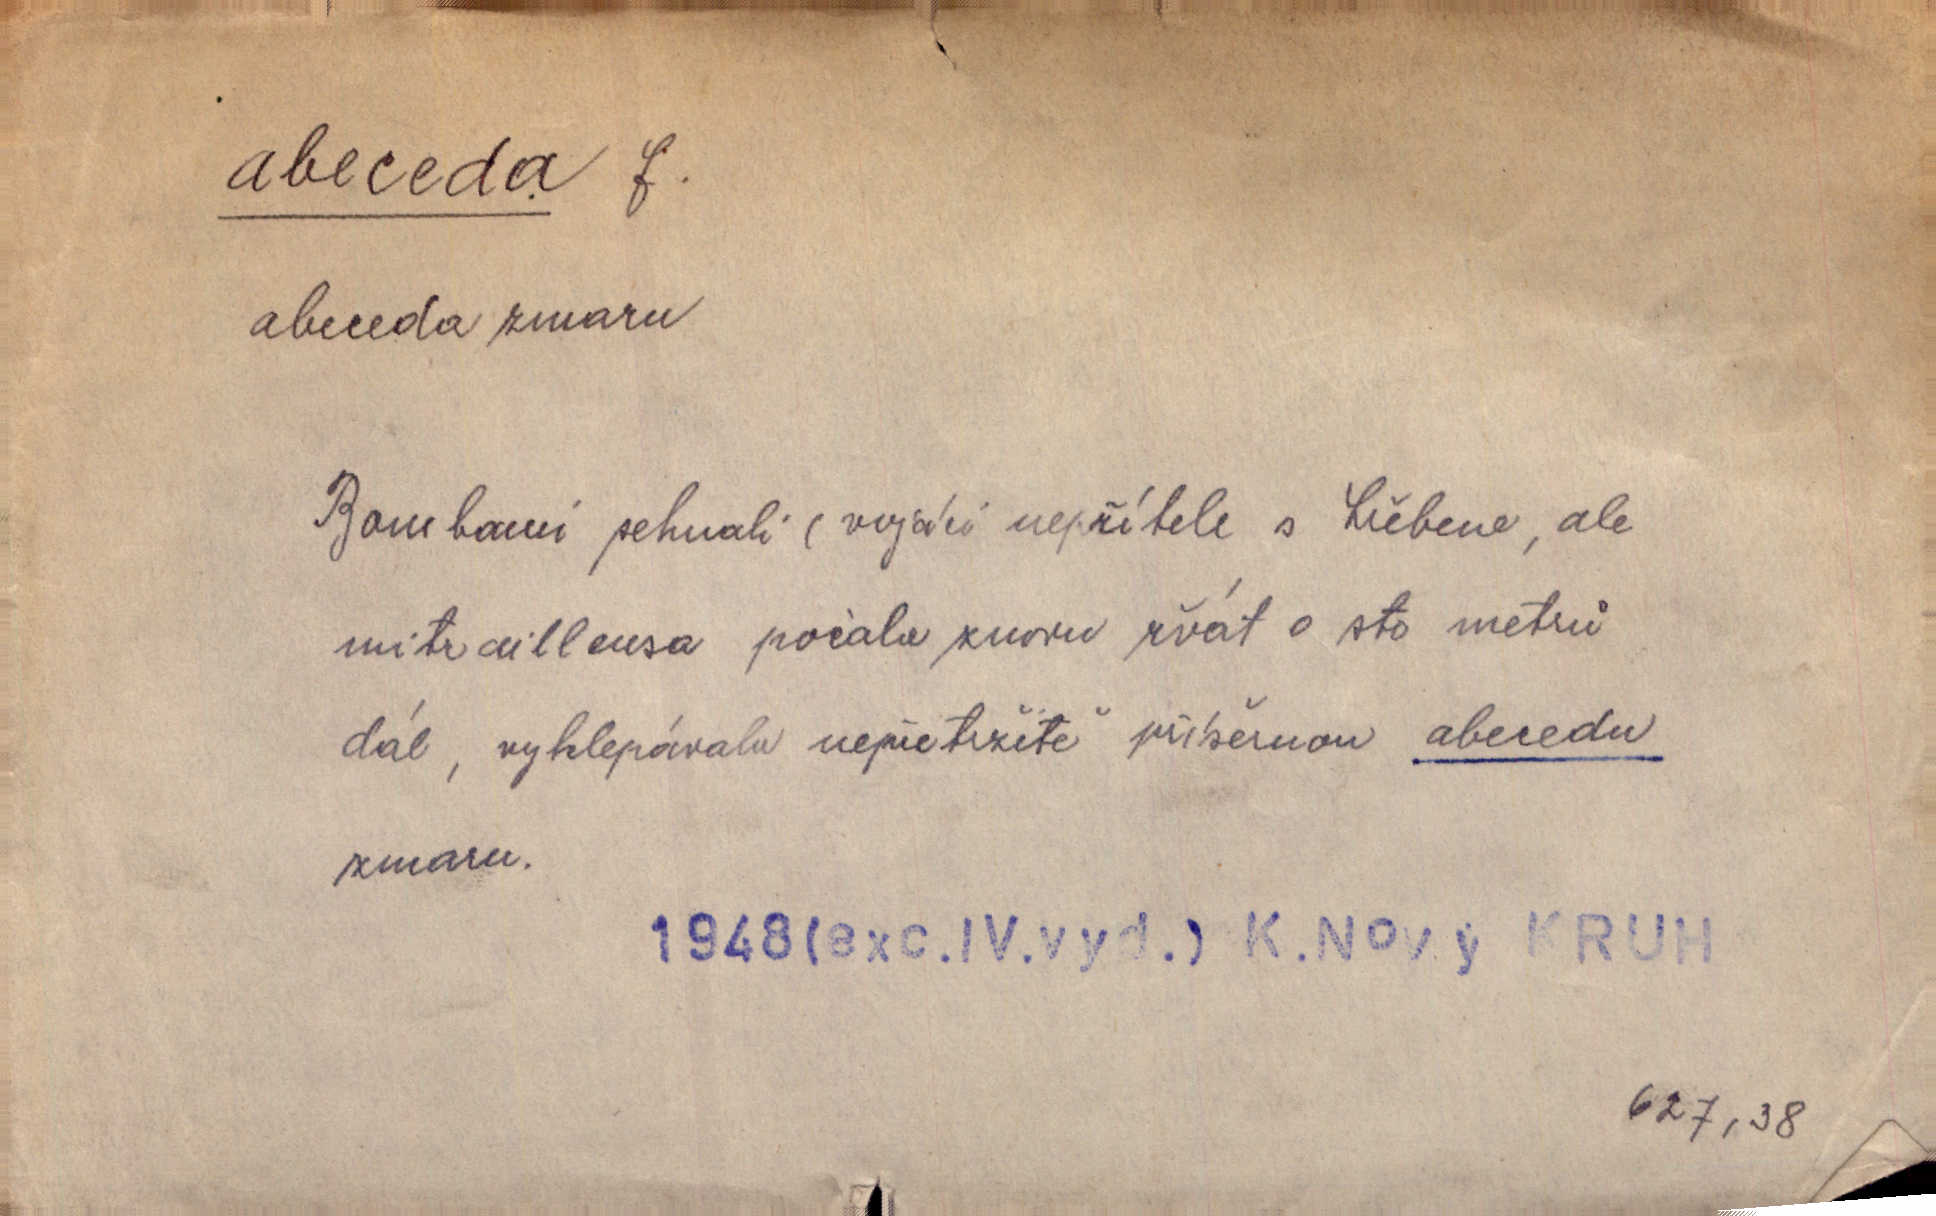 abeceda f.
abeceda zmaru
Bombami sehnali (vojáci nepřítele s hřebene, ale
mitrailleusa počala znovu řvát o sto metrů
dál, vyklepávala nepřetržitě příšernou abecedu
zmaru.
1948(exc.IV.vyd.) K.Nový KRUH
627,38